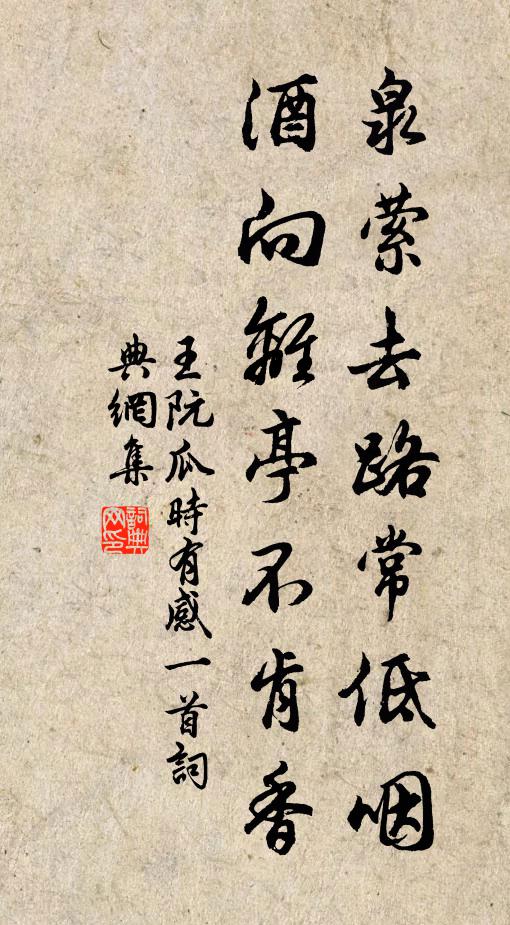 泉萦去路常低咽
酒向離亭不肯香
王阮瓜時有感一首詞
典網集
詞典网印